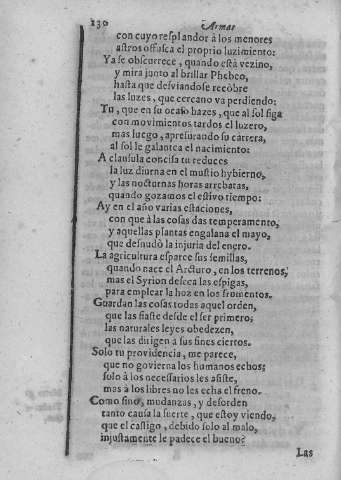 130 Armas
con cuyo resplandor à los menores
astros offusca el proprio luzimiento:
Ya se obscurece, quando està vezino,
y mira junto al brillar Phebeo,
hasta que desviandose recòbre
las luzes, que cercano va perdiendo:
Tu, que en su ocaso hazes, que al sol siga
con movimientos tardos el luzero,
mas luego, apresurando su carrera,
al sol le galantea el nacimiento:
A clausula concisa tu reduces
la luz diurna en el mustio hybierno,
y las nocturnas horas arrebatas,
quando gozamos el estivo tiempo:
Ay en el año varias estaciones,
con que à las cosas das temperamento,
y aquellas plantas engalana el mayo,
que desnudò la injuria del enero.
La agricultura esparce sus semillas,
quando nace el Arcturo, en los terrenos,
mas el Syrion deseca las espigas,
para emplear la hoz en los fromentos.
Guardan las cosas todas aquel orden,
que las fiaste desde el ser primero;
las naturales leyes obedezen,
que las dirigen à sus fines ciertos.
Solo tu providencia, me parece,
que no govierna los humanos echos;
solo à los necessarios les assiste,
mas à los libres no les echa el freno.
Como sino, mudanzas, y desorden
tanto causa la suerte, que estoy viendo,
que el castigo, debido solo al malo,
injustamente le padece el bueno?
Las